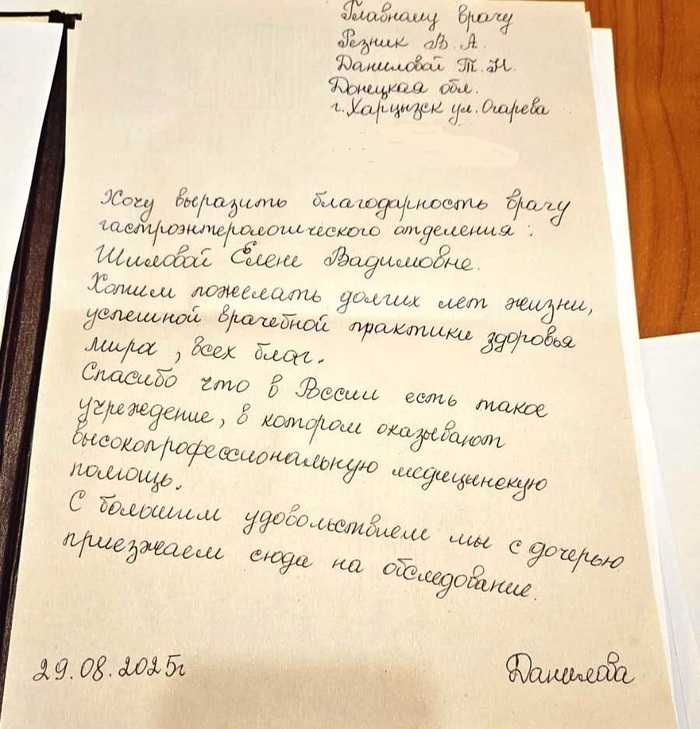 Главному врачу
Резник В. А.
Даниловой Т. Н.
Донецкая обл.
г. Харцызск ул. Огарева
Хочу выразить благодарность врачу
гастроэнтерологического отделения :
Шиловой Елене Вадимовне.
Хотим пожелать долгих лет жизни,
успешной врачебной практики здоровья
мира, всех благ.
Спасибо что в России есть такое
учреждение, в котором оказывают
высокопрофессиональную медицинскую
помощь.
С большим удовольствием мы с дочерью
приезжаем сюда на обследование.
29.08.2025г Данилова